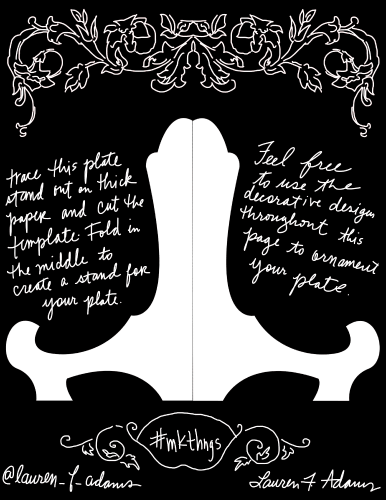 trace this plate
stand out on thick
paper and cut the
template. Fold in
the middle to
create a stand for
your plate.
Feel free
to use the
decorative designs
throughout this
page to ornament
your plate.
#mkthngs
@lauren_f_adams
Lauren F Adams